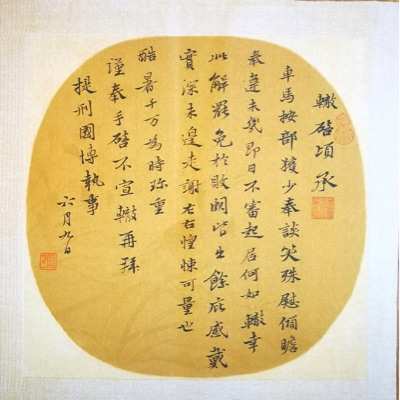 轍啓頃承
車馬按部獲少奉談笑殊慰傾瞻
奉違未幾即日不審起居何如轍幸
此解罷免於敗闕皆出餘庇感戴
實深未遑走謝左右惶悚可量也
酷暑千万為時珍重
謹奉手啓不宣轍再拜
提刑國博執事
六月九日